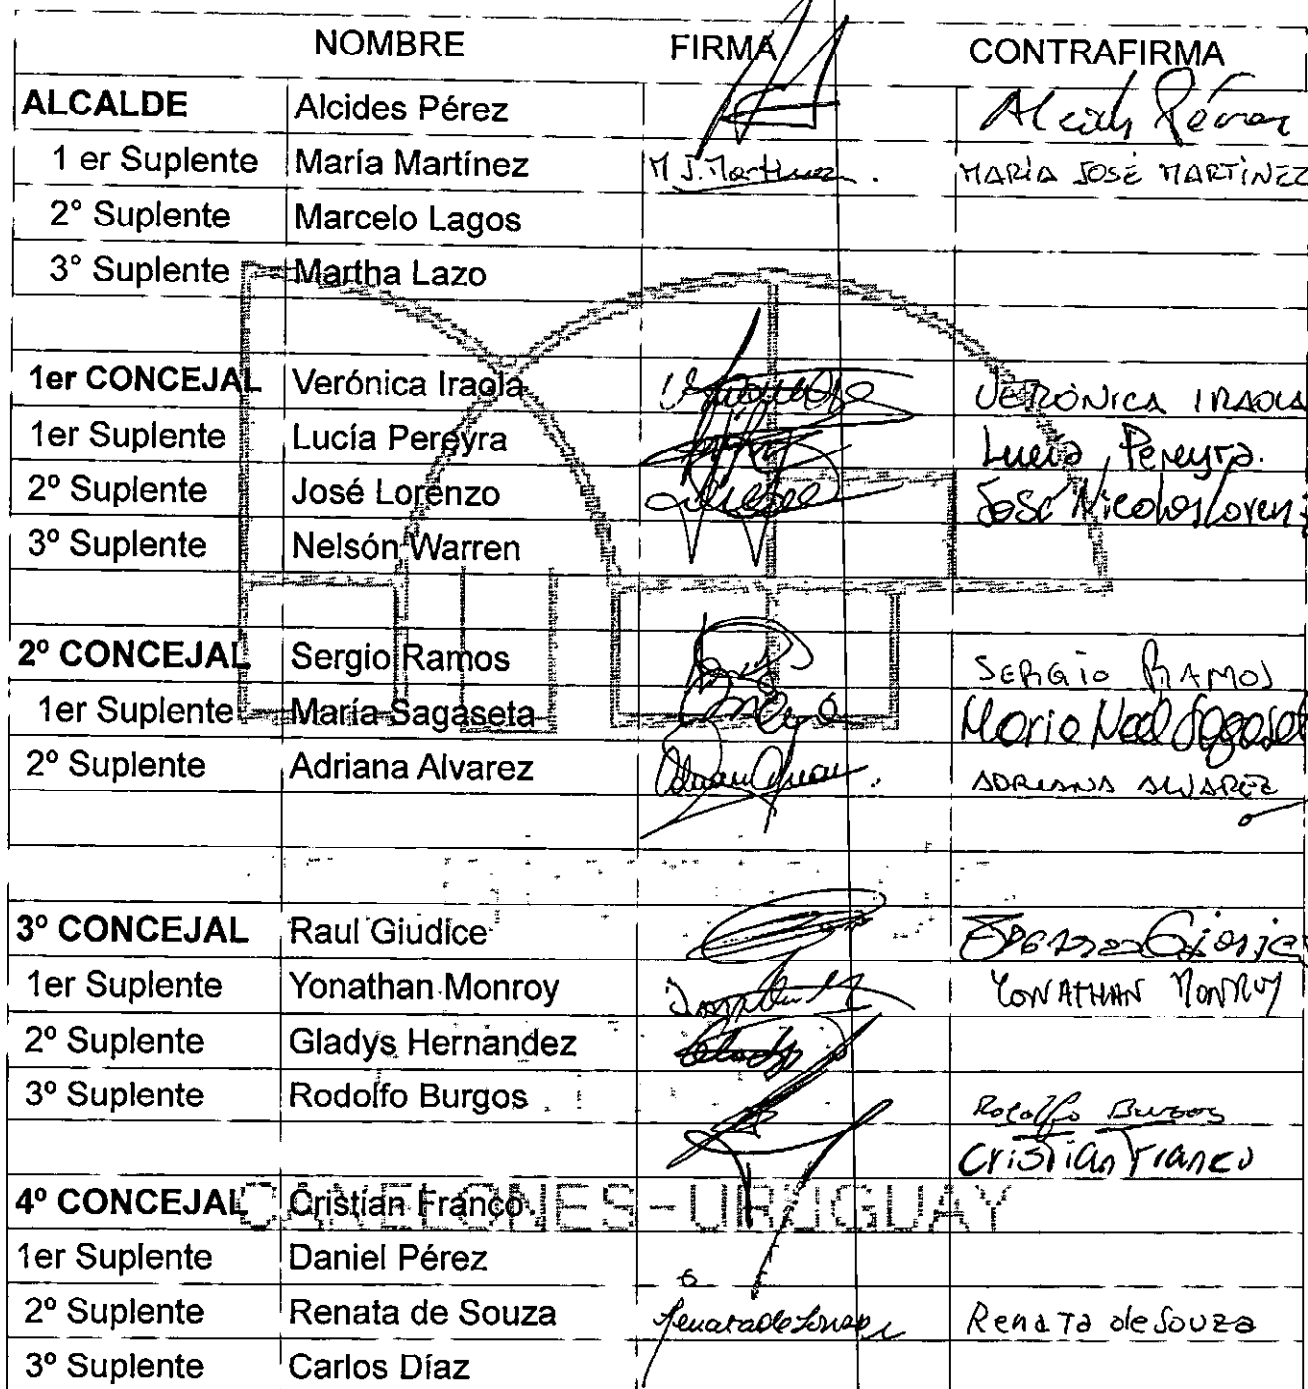 NOMBRE FIRMA CONTRAFIRMA
ALCALDE Alcides Pérez Pérez
1 er Suplente María Martínez M J. Martínez. MARÍA JOSÉ MARTÍNEZ
2° Suplente Marcelo Lagos
3° Suplente Martha Lazo
1er CONCEJAL Verónica Iraola VERÓNICA IRAOLA
1er Suplente Lucía Pereyra Lucía Pereyra.
2º Suplente José Lorenzo José Nicolás Loren
3º Suplente Nelsón Warren
2º CONCEJAL Sergio Ramos SERGIO RAMOS
1er Suplente María Sagaseta María Noel Sagaset
2º Suplente Adriana Alvarez ADRIANA ALVAREZ
3º CONCEJAL Raul Giudice
1er Suplente Yonathan Monroy YONATHAN MONROY
2º Suplente Gladys Hernández Gladys
3º Suplente Rodolfo Burgos Rodolfo Burgos
Cristian Franco
4º CONCEJAL Cristian Franco
CANELONES - URUGUAY
1er Suplente Daniel Pérez
2º Suplente Renata de Souza Renata de Souza Renata de Souza
3º Suplente Carlos Díaz